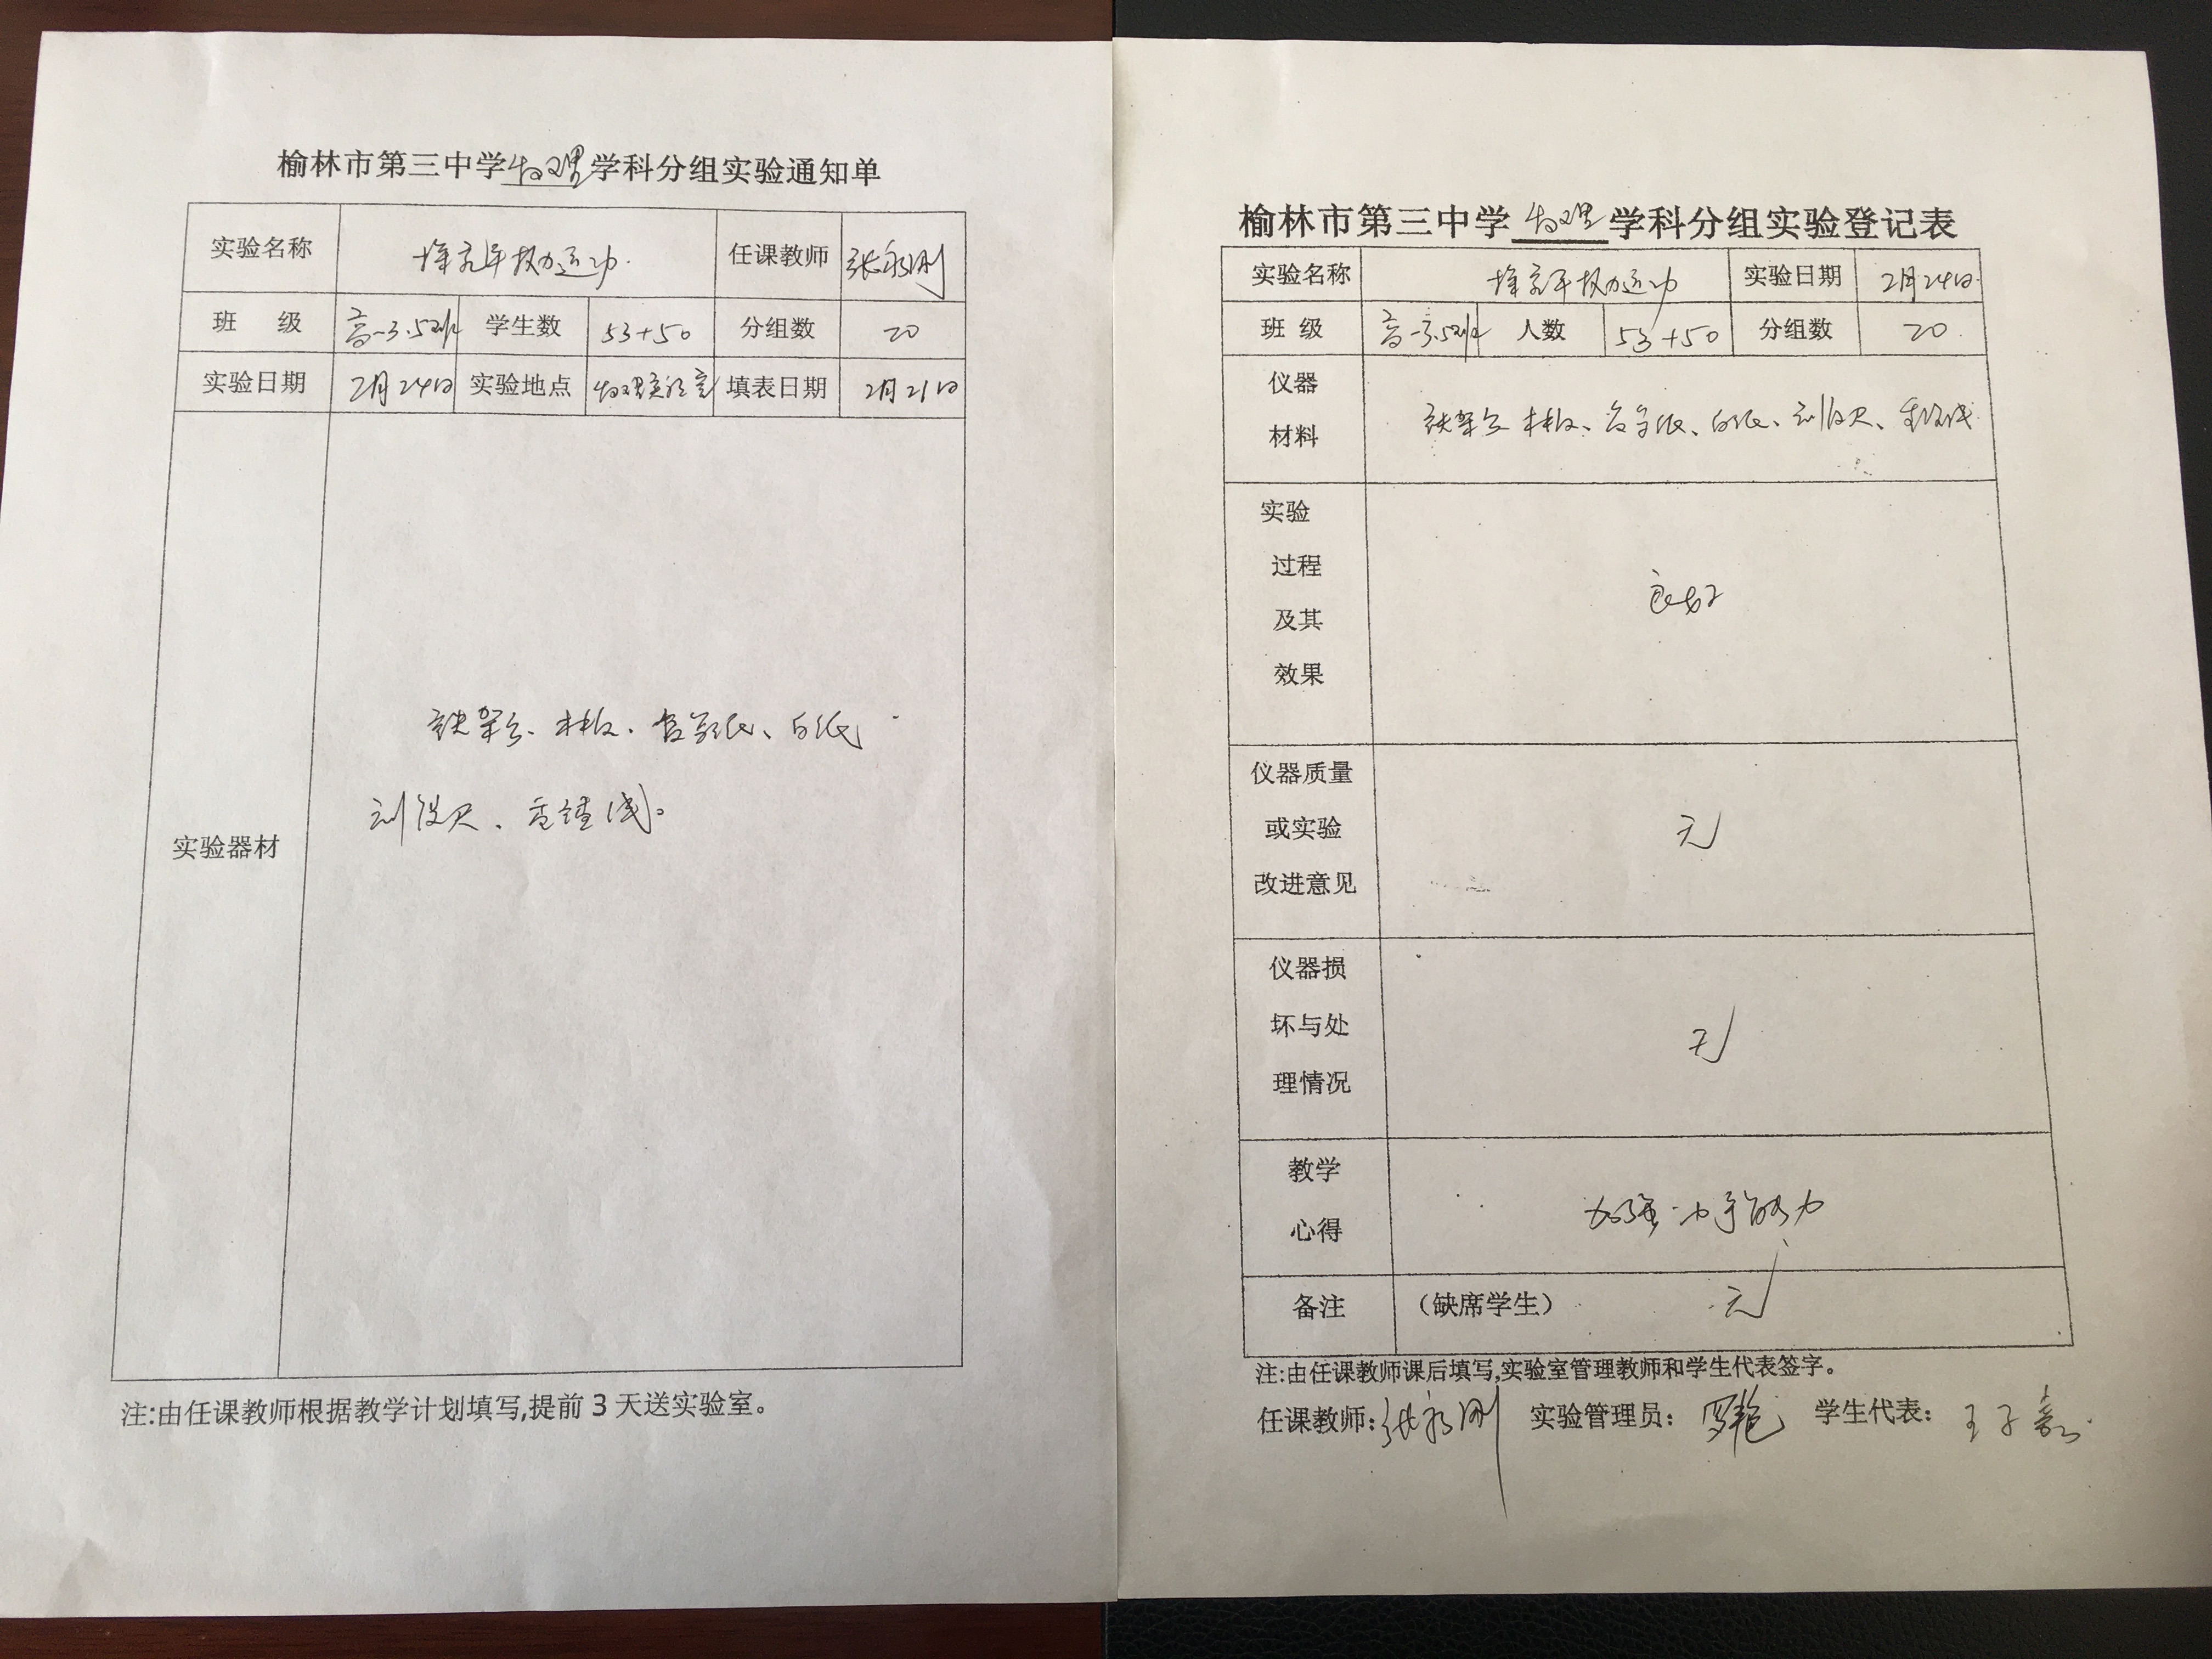 榆林市第三中学物理学科分组实验通知单
实验名称 探究平抛运动 任课教师 张永刚
班 级 高一3.52班 学生数 53+50 分组数 20
实验日期 2月24日 实验地点 物理实验室 填表日期 2月21日
实验器材
铁架台、木板、复写纸、白纸
刻度尺、重锤线。
注:由任课教师根据教学计划填写,提前3天送实验室。
榆林市第三中学 物理 学科分组实验登记表
实验名称 探究平抛运动 实验日期 2月24日
班 级 高一3.52班 人数 53+50 分组数 20
仪器
材料
铁架台 木板、复写纸、白纸、刻度尺、重锤线
实验
过程
及其
效果
良好
仪器质量
或实验
改进意见
无
仪器损
坏与处
理情况
无
教学
心得
加强动手能力
备注 (缺席学生) 无
注:由任课教师课后填写,实验室管理教师和学生代表签字。
任课教师:张永刚 实验管理员: 罗艳 学生代表: 王子